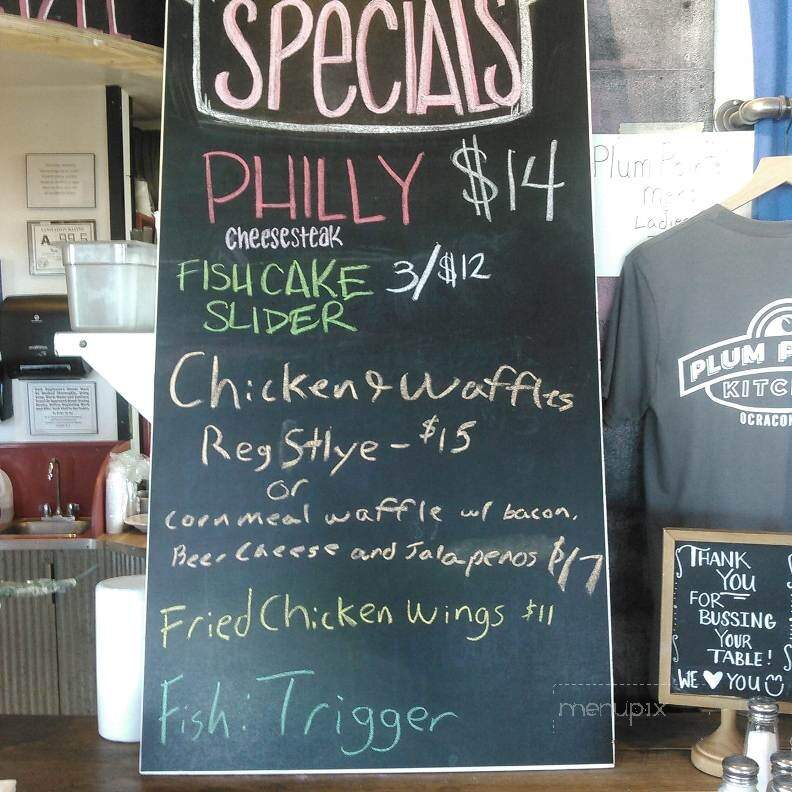 SPECIALS
PHILLY $14
cheesesteak
FISH CAKE 3/$12
SLIDER
Chicken & Waffles
Reg Stlye - $15
or
Cornmeal waffle w/ bacon,
Beer Cheese and Jalapenos $17
Fried Chicken Wings $11
Fish: Trigger
Plum
Ladies
PLUM P
KITC
OCRACO
THANK
YOU
FOR
BUSSING
YOUR
TABLE!
WE ♥ YOU
SANITATION RATING
A 99.5
menupix